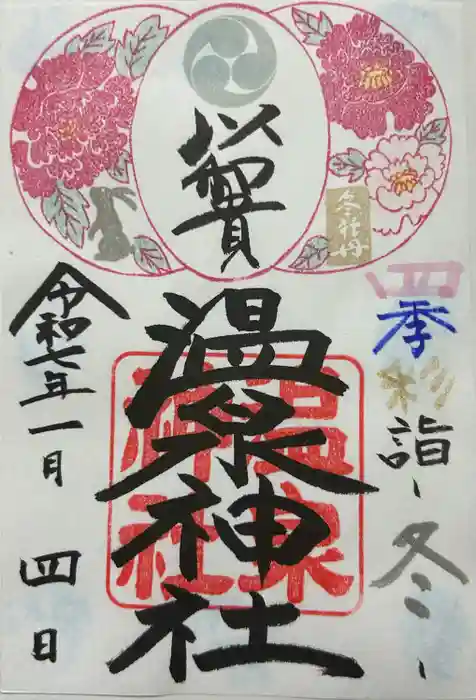 四季彩詣-冬-
冬牡丹
温泉神社
温泉神社
令和七年一月四日